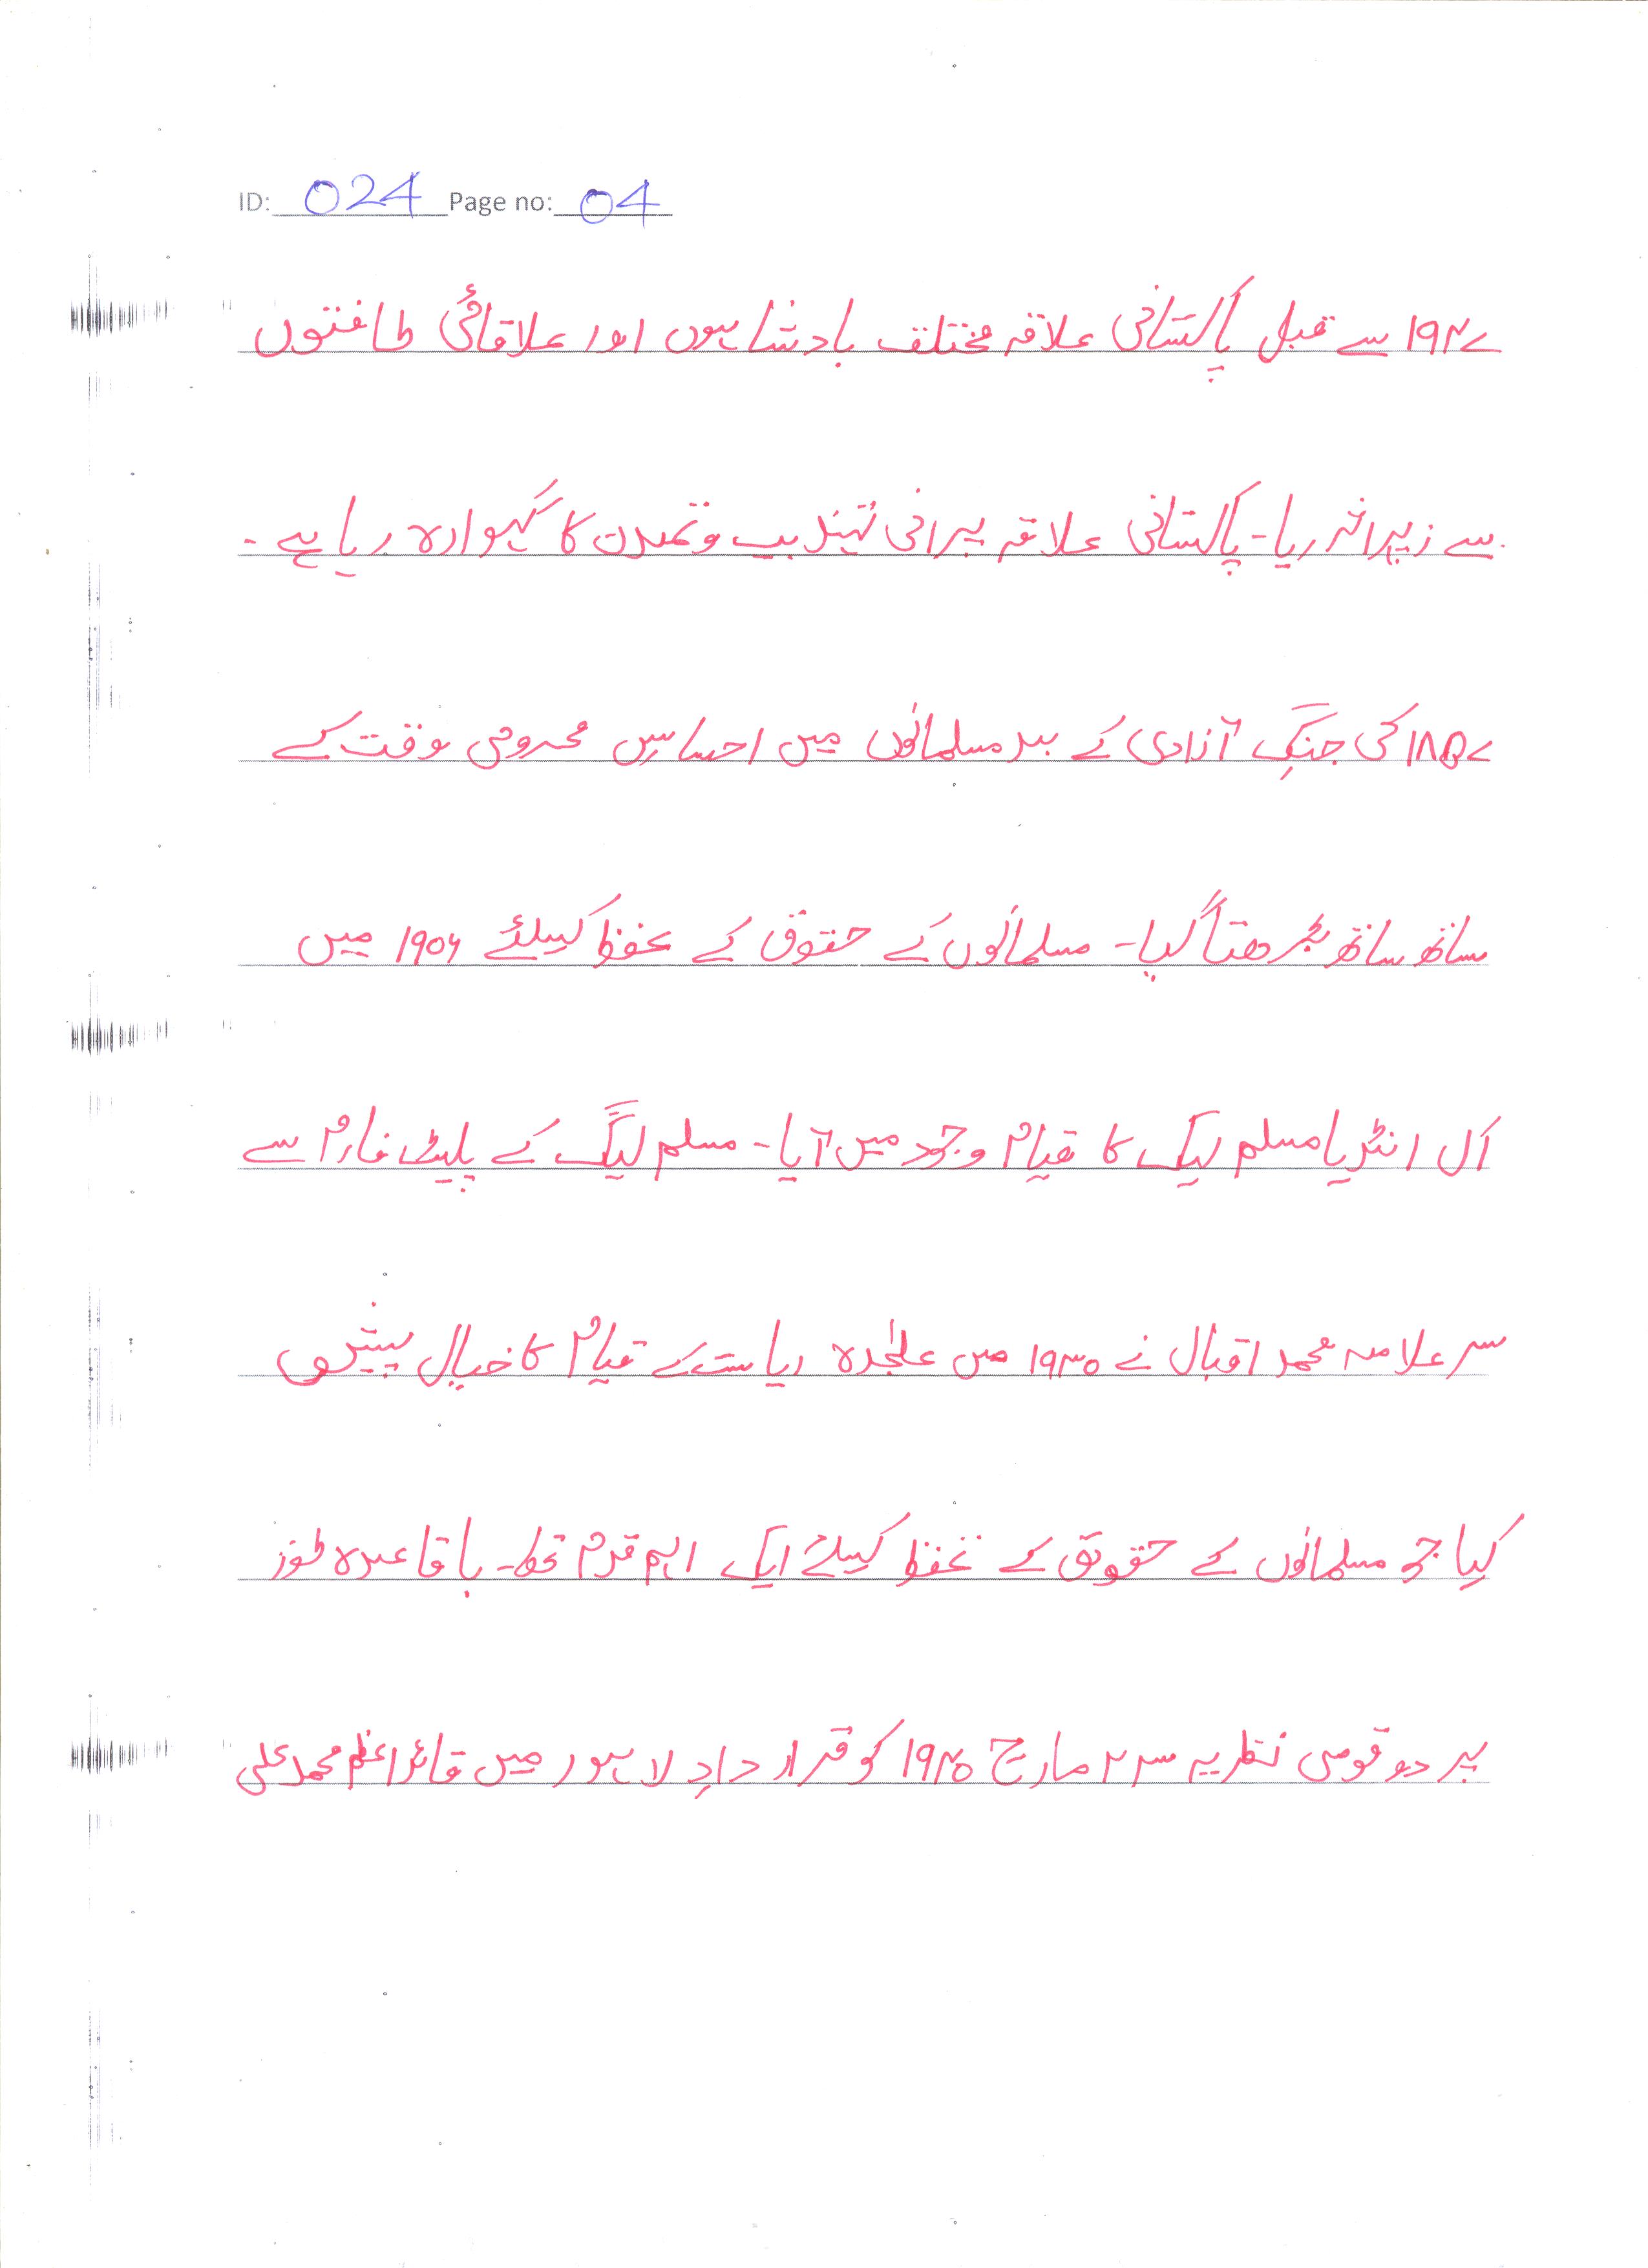 ID: 024 Page no: 04
۱۹۴۷ سے قبل پاکستانی علاقہ مختلف بادشاہوں اور علاقائی طاقتوں
سے زیر اثر رہا۔ پاکستانی علاقہ پرانی تہذیب و تمدن کا گہوارہ رہا ہے۔
۱۸۵۷ کی جنگِ آزادی کے بعد مسلمانوں میں احساسِ محرومی وقت کے
ساتھ ساتھ بڑھتا گیا۔ مسلمانوں کے حقوق کے تحفظ کیلئے ۱۹۰۶ میں
آل انڈیا مسلم لیگ کا قیام وجود میں آیا۔ مسلم لیگ کے پلیٹ فارم سے
سر علامہ محمد اقبال نے ۱۹۳۰ میں علیٰحدہ ریاست کے قیام کا خیال پیش
کیا جو مسلمانوں کے حقوق کے تحفظ کیلئے ایک اہم قدم تھا۔ باقاعدہ طور
پر دو قومی نظریہ ۲۳ مارچ ۱۹۴۰ کو قرار دادِ لاہور میں قائد اعظم محمد علی